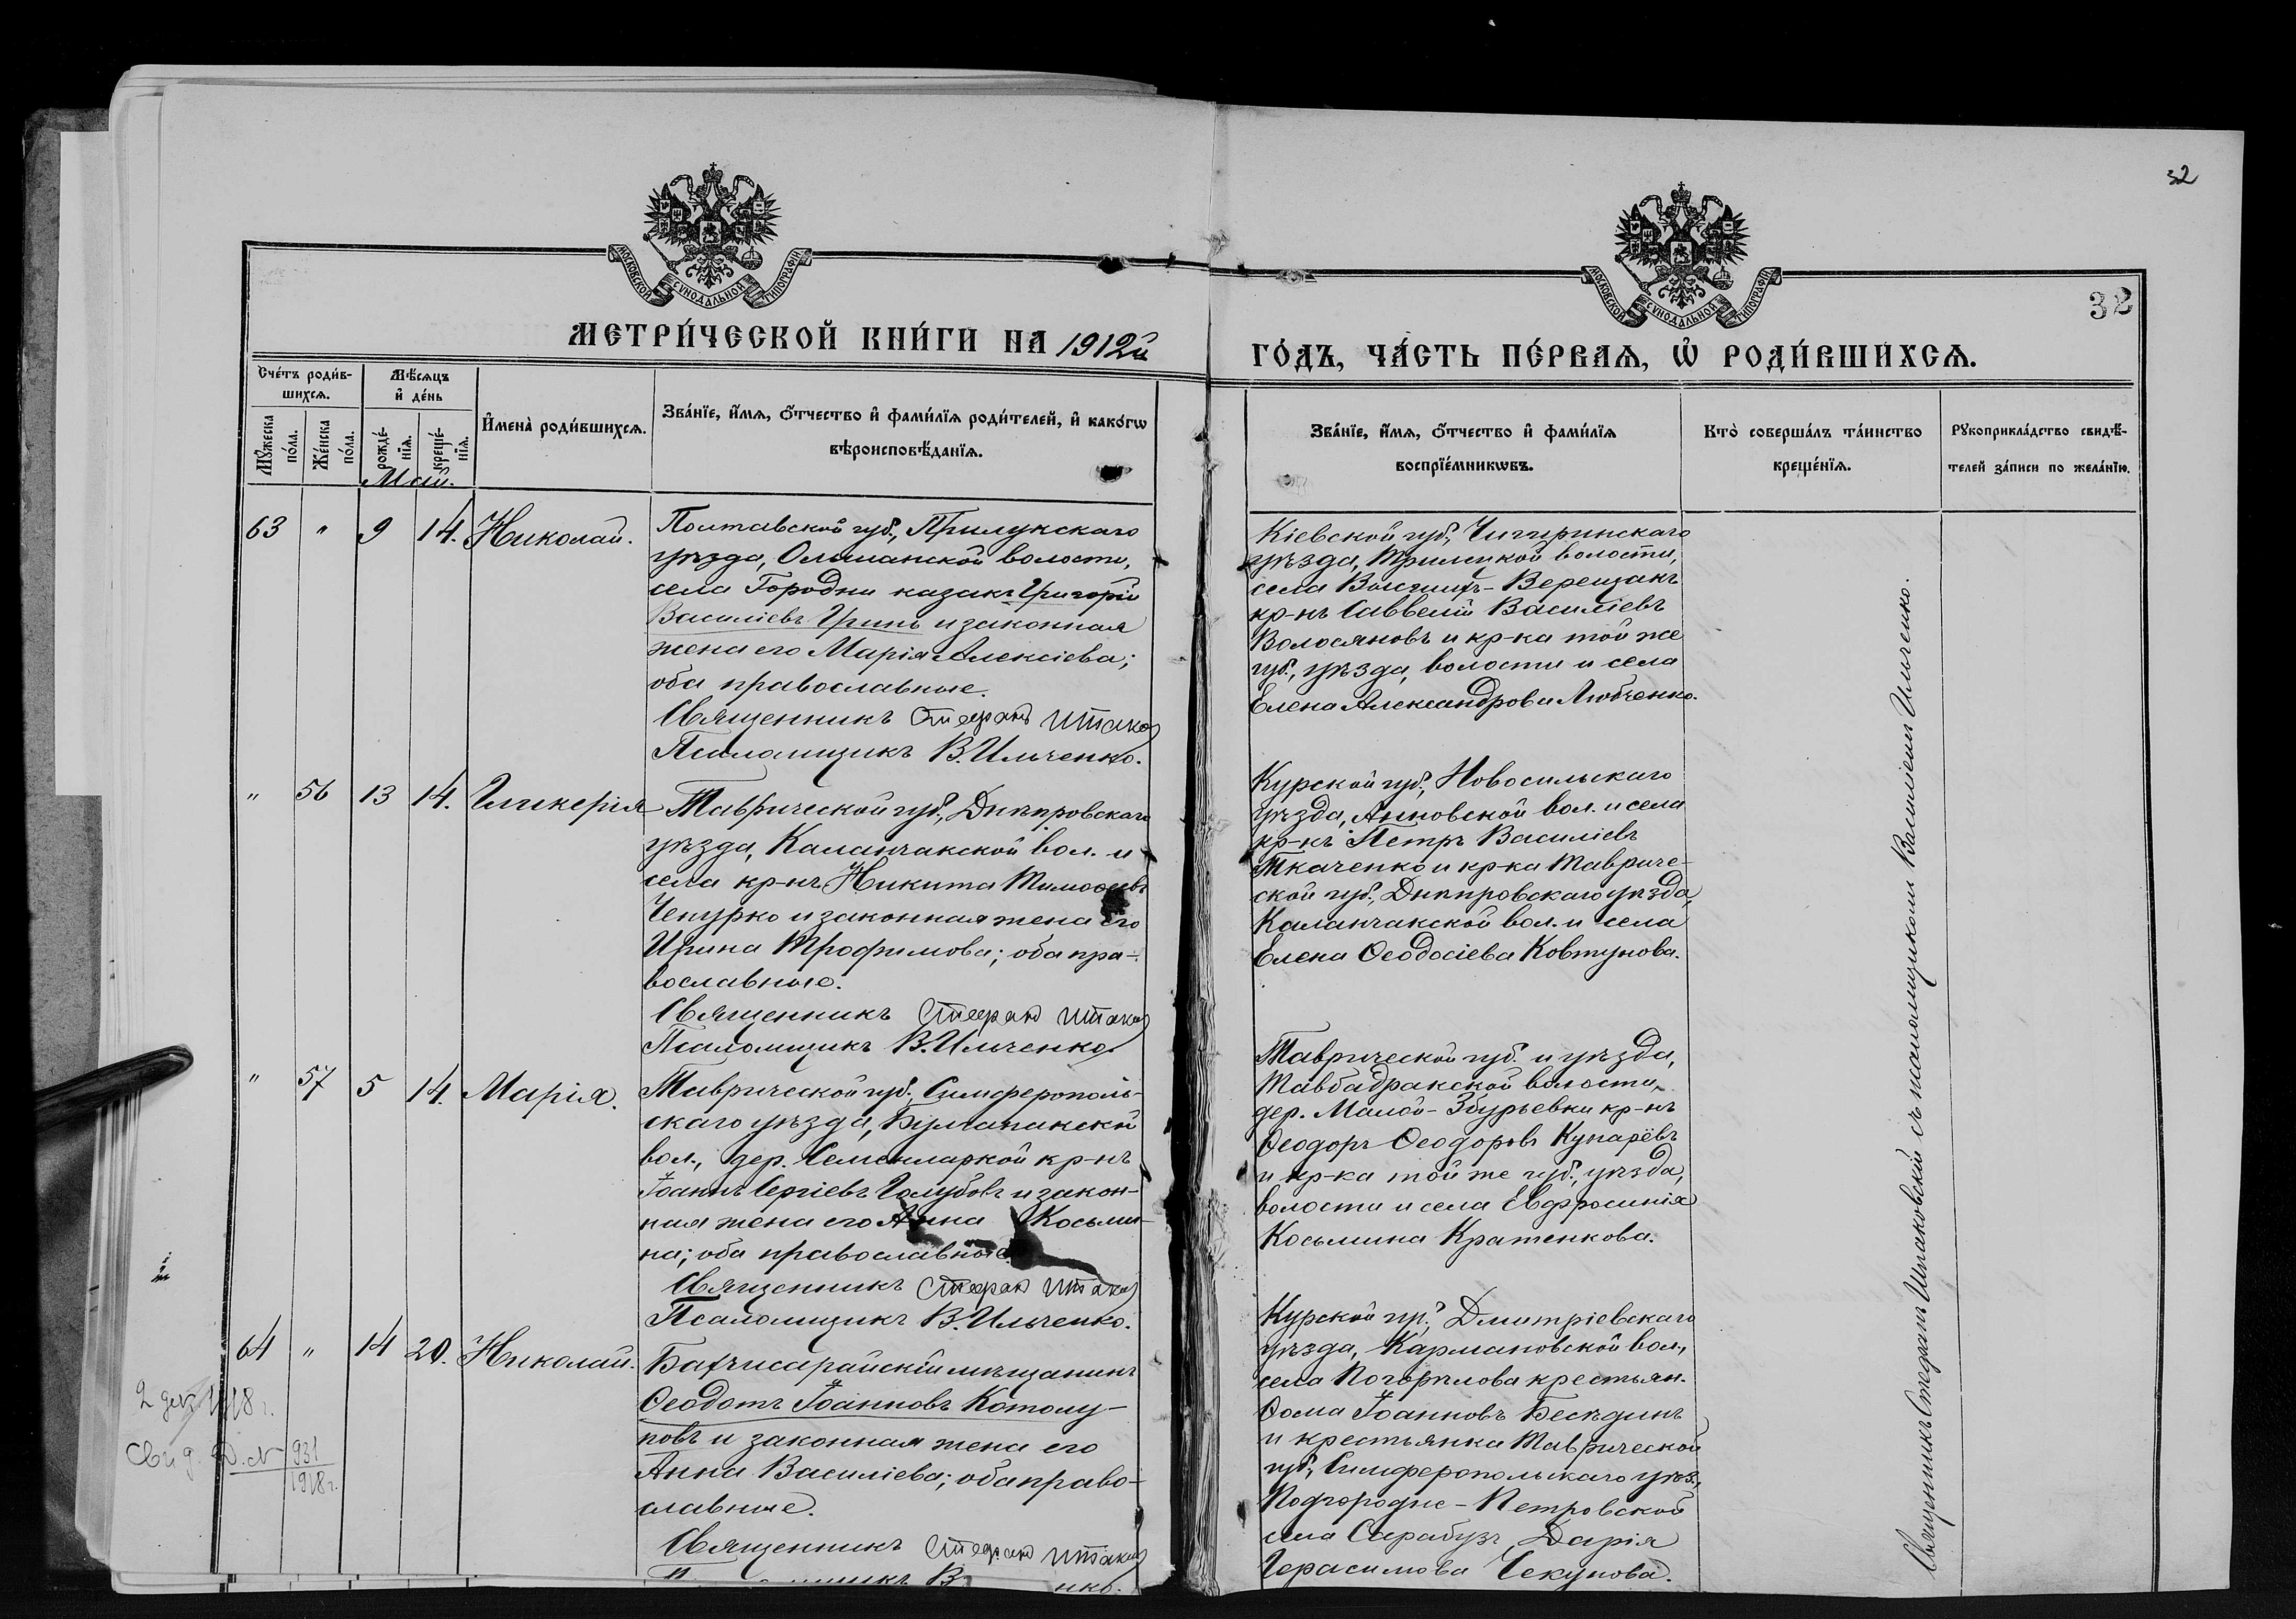 32
МОСКОВСКОЙ СѴНОДАЛЬНОЙ ТИПОГРАФІИ
МОСКОВСКОЙ СѴНОДАЛЬНОЙ ТИПОГРАФІИ
32
МЕТРИ́ЧЕСКОЙ КНИ́ГИ НА 1912й
ГО́ДЪ, ЧА́СТЬ ПЕ́РВАѦ, Ѡ҆ РОДИ́ВШИХСѦ.
Сче́тъ роди́в-
шихсѧ.
Мꙋ́жеска
по́ла.
Же́нска
по́ла.
Мѣ́сѧцъ
и҆ де́нь
рожде́-
нїѧ.
креще́-
нїѧ.
Май.
И҆мена̀ роди́вшихсѧ.
Зва́нїе, и҆́мѧ, ѻ҆́тчество и҆ фами́лїѧ роди́телей, и҆ како́гѡ
вѣроисповѣ́данїѧ.
Зва́нїе, и҆́мѧ, ѻ҆́тчество и҆ фами́лїѧ
воспрїе́мникѡвъ.
Кто̀ соверша́лъ та́инство
креще́нїѧ.
Рꙋкоприкла́дство свидѣ́-
телей за́писи по жела́нїю.
63 " 9 14. Николай.
Полтавской губ., Прилукскаго
уѣзда, Ольшанской волости,
села Городни казакъ Григорій
Василіевъ Гринь и законная
жена его Марія Алексіева;
оба православные.
Священникъ Стефанъ
Псаломщикъ В. Ильченко.
Кіевской губ., Чигиринскаго
уѣзда, волости,
села Верещакъ
кр-нъ Саввелій Василіевъ
Волосяновъ и кр-ка той же
губ., уѣзда, волости и села
Елена Александрова Любченко.
" 56 13 14. Гликерія
Таврической губ., Днѣпровскаго
уѣзда, Каланчакской вол. и
села кр-нъ Никита Тимофеевъ
Чепурко и законная жена его
Ирина Трофимова; оба пра-
вославные.
Священникъ Стефанъ
Псаломщикъ В. Ильченко.
Курской губ., Новосильскаго
уѣзда, Анновской вол. и села
кр-нъ Петръ Василіевъ
Ткаченко и кр-ка Тавриче-
ской губ., Днѣпровскаго уѣзда,
Каланчакской вол. и села
Елена Ѳеодосіева Ковтунова.
" 57 5 14. Марія.
Таврической губ., Симферополь-
скаго уѣзда, Булганакской
вол., дер. кр-нъ
Іоаннъ Сергіевъ Голубовъ и закон-
ная жена его Анна Косьми-
на; оба православные.
Священникъ Стефанъ
Псаломщикъ В. Ильченко.
Таврической губ. и уѣзда,
волости,
дер. Малой-Збурьевки кр-нъ
Ѳеодоръ Ѳеодоровъ Кунарёвъ
и кр-ка той же губ., уѣзда,
волости и села Евфросинія
Косьмина Кратенкова.
64 " 14 20. Николай.
Бахчисарайскій мѣщанинъ
Ѳеодотъ Іоанновъ Котолу-
повъ и законная жена его
Анна Василіева; оба право-
славные.
Священникъ Стефанъ
Курской гр., Дмитріевскаго
уѣзда, Кармановской вол.,
села Погорѣлова крестьян.
Ѳома Іоанновъ Бесѣдинъ
и крестьянка Таврической
губ., Симферопольскаго уѣз.,
Подгородне-Петровской
села Сарабузъ Дарія
Герасимова Чекунова.
2 дек 1918 г.
Свид. Д. N 931
1918 г.
Священникъ Стефанъ съ псаломщикомъ Василіемъ Ильченко.